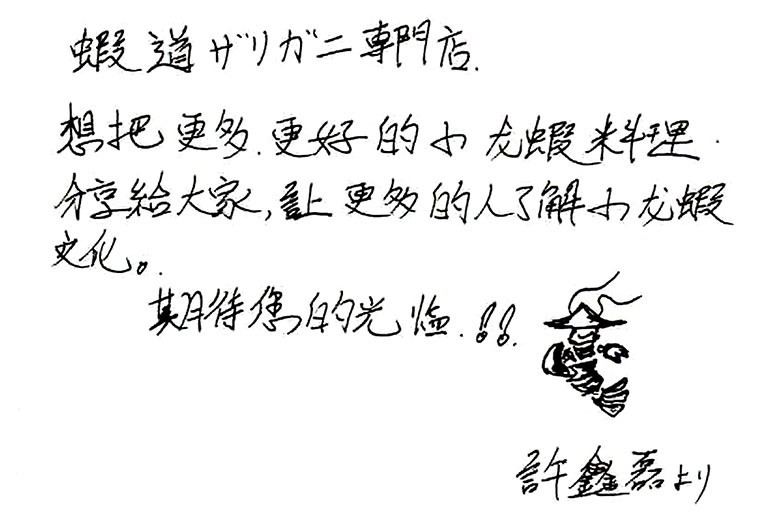 蝦道ザリガニ専門店.
想把更多.更好的小龙蝦料理.
分享給大家,讓更多的人了解小龙蝦
文化。
期待您的光臨.!!
許鑫磊より